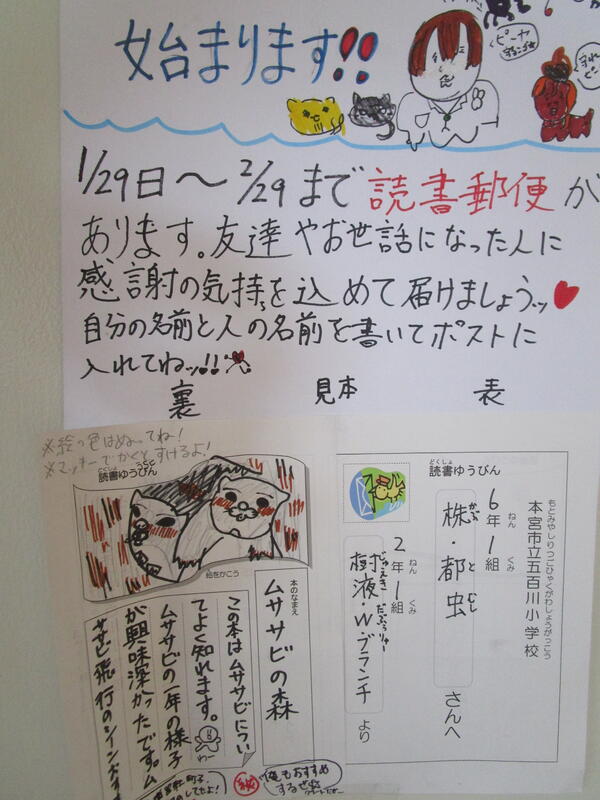 始まります!!
ピーナ
1/29日〜2/29まで読書郵便が
あります。友達やお世話になった人に
感謝の気持ちを込めて届けましょうッ
自分の名前と人の名前を書いてポストに
入れてねッ!!
裏 見本 表
※絵の色はぬってね!
※マッキーでかくとすけるよ!
読書ゆうびん
絵をかこう
本のなまえ
ムササビの森
この本はムササビについ
てよく知れます。
ムササビの一年の様子
が興味深かったです。ム
ササビ飛行のシーン
俺もおすすめ
するぜ
どくしょ
読書ゆうびん
もとみやしりつごひゃくがわしょうがっこう
本宮市立五百川小学校
6年1組
ねん くみ
株・都虫 さんへ
かぶ と むし
2年1組
ねん くみ
樹液・W・ブランチ より
じゅえき だぶりゅー